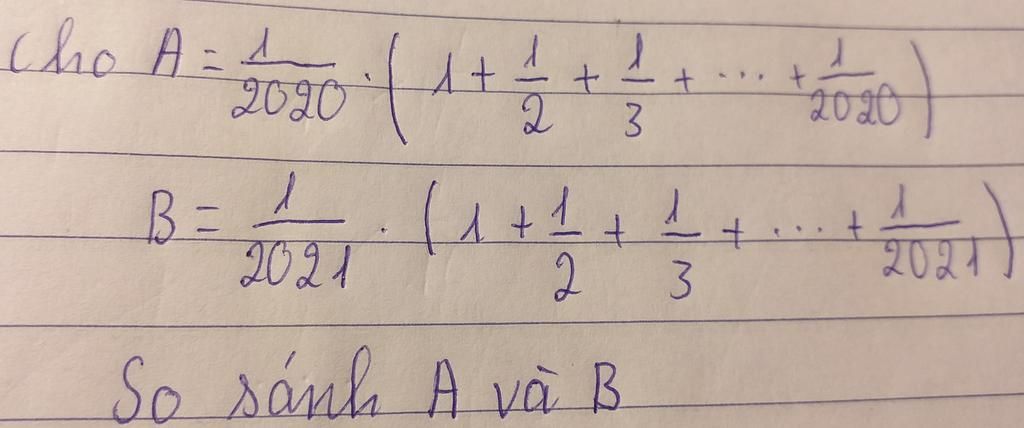 Cho A = 1/2020 . ( 1 + 1/2 + 1/3 + ... + 1/2020 )
B = 1/2021 . ( 1 + 1/2 + 1/3 + ... + 1/2021 )
So sánh A và B